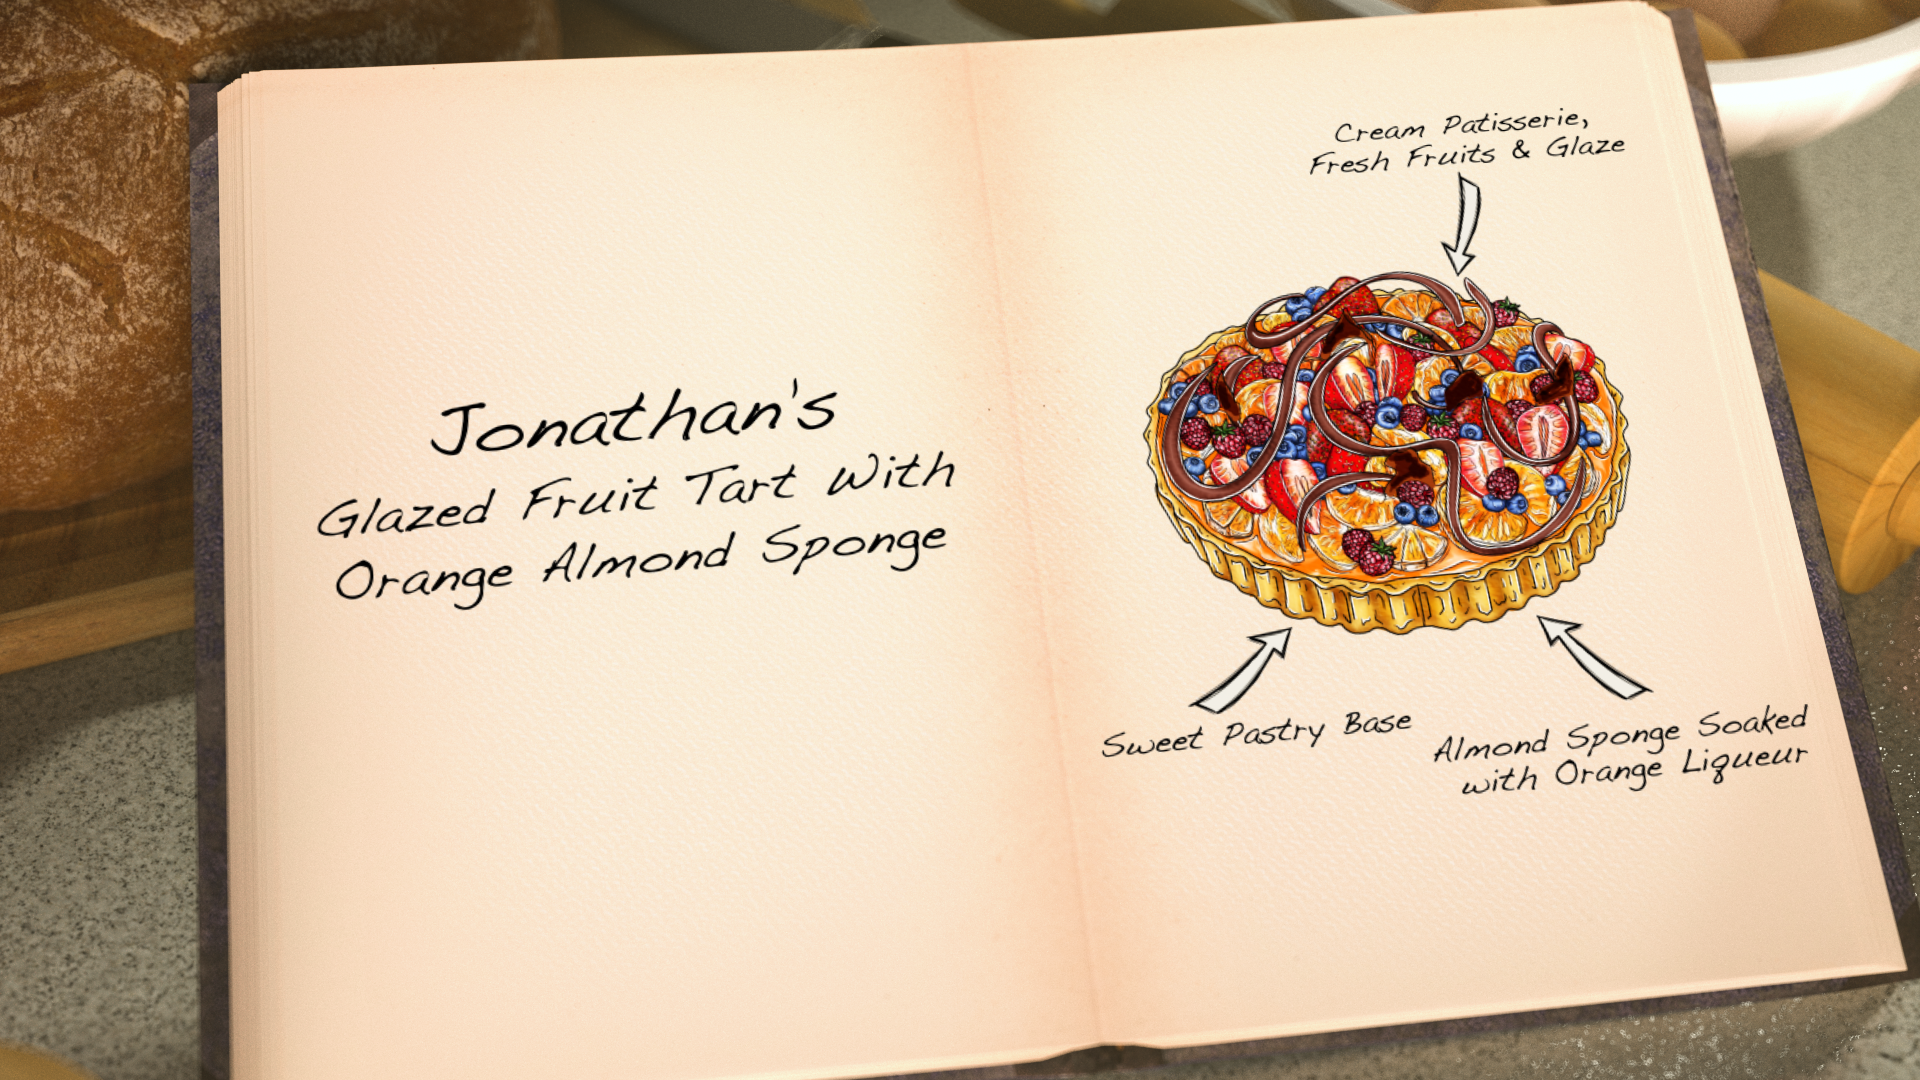 Jonathan's
Glazed Fruit Tart With
Orange Almond Sponge
Cream Patisserie,
Fresh Fruits & Glaze
Sweet Pastry Base
Almond Sponge Soaked
with Orange Liqueur